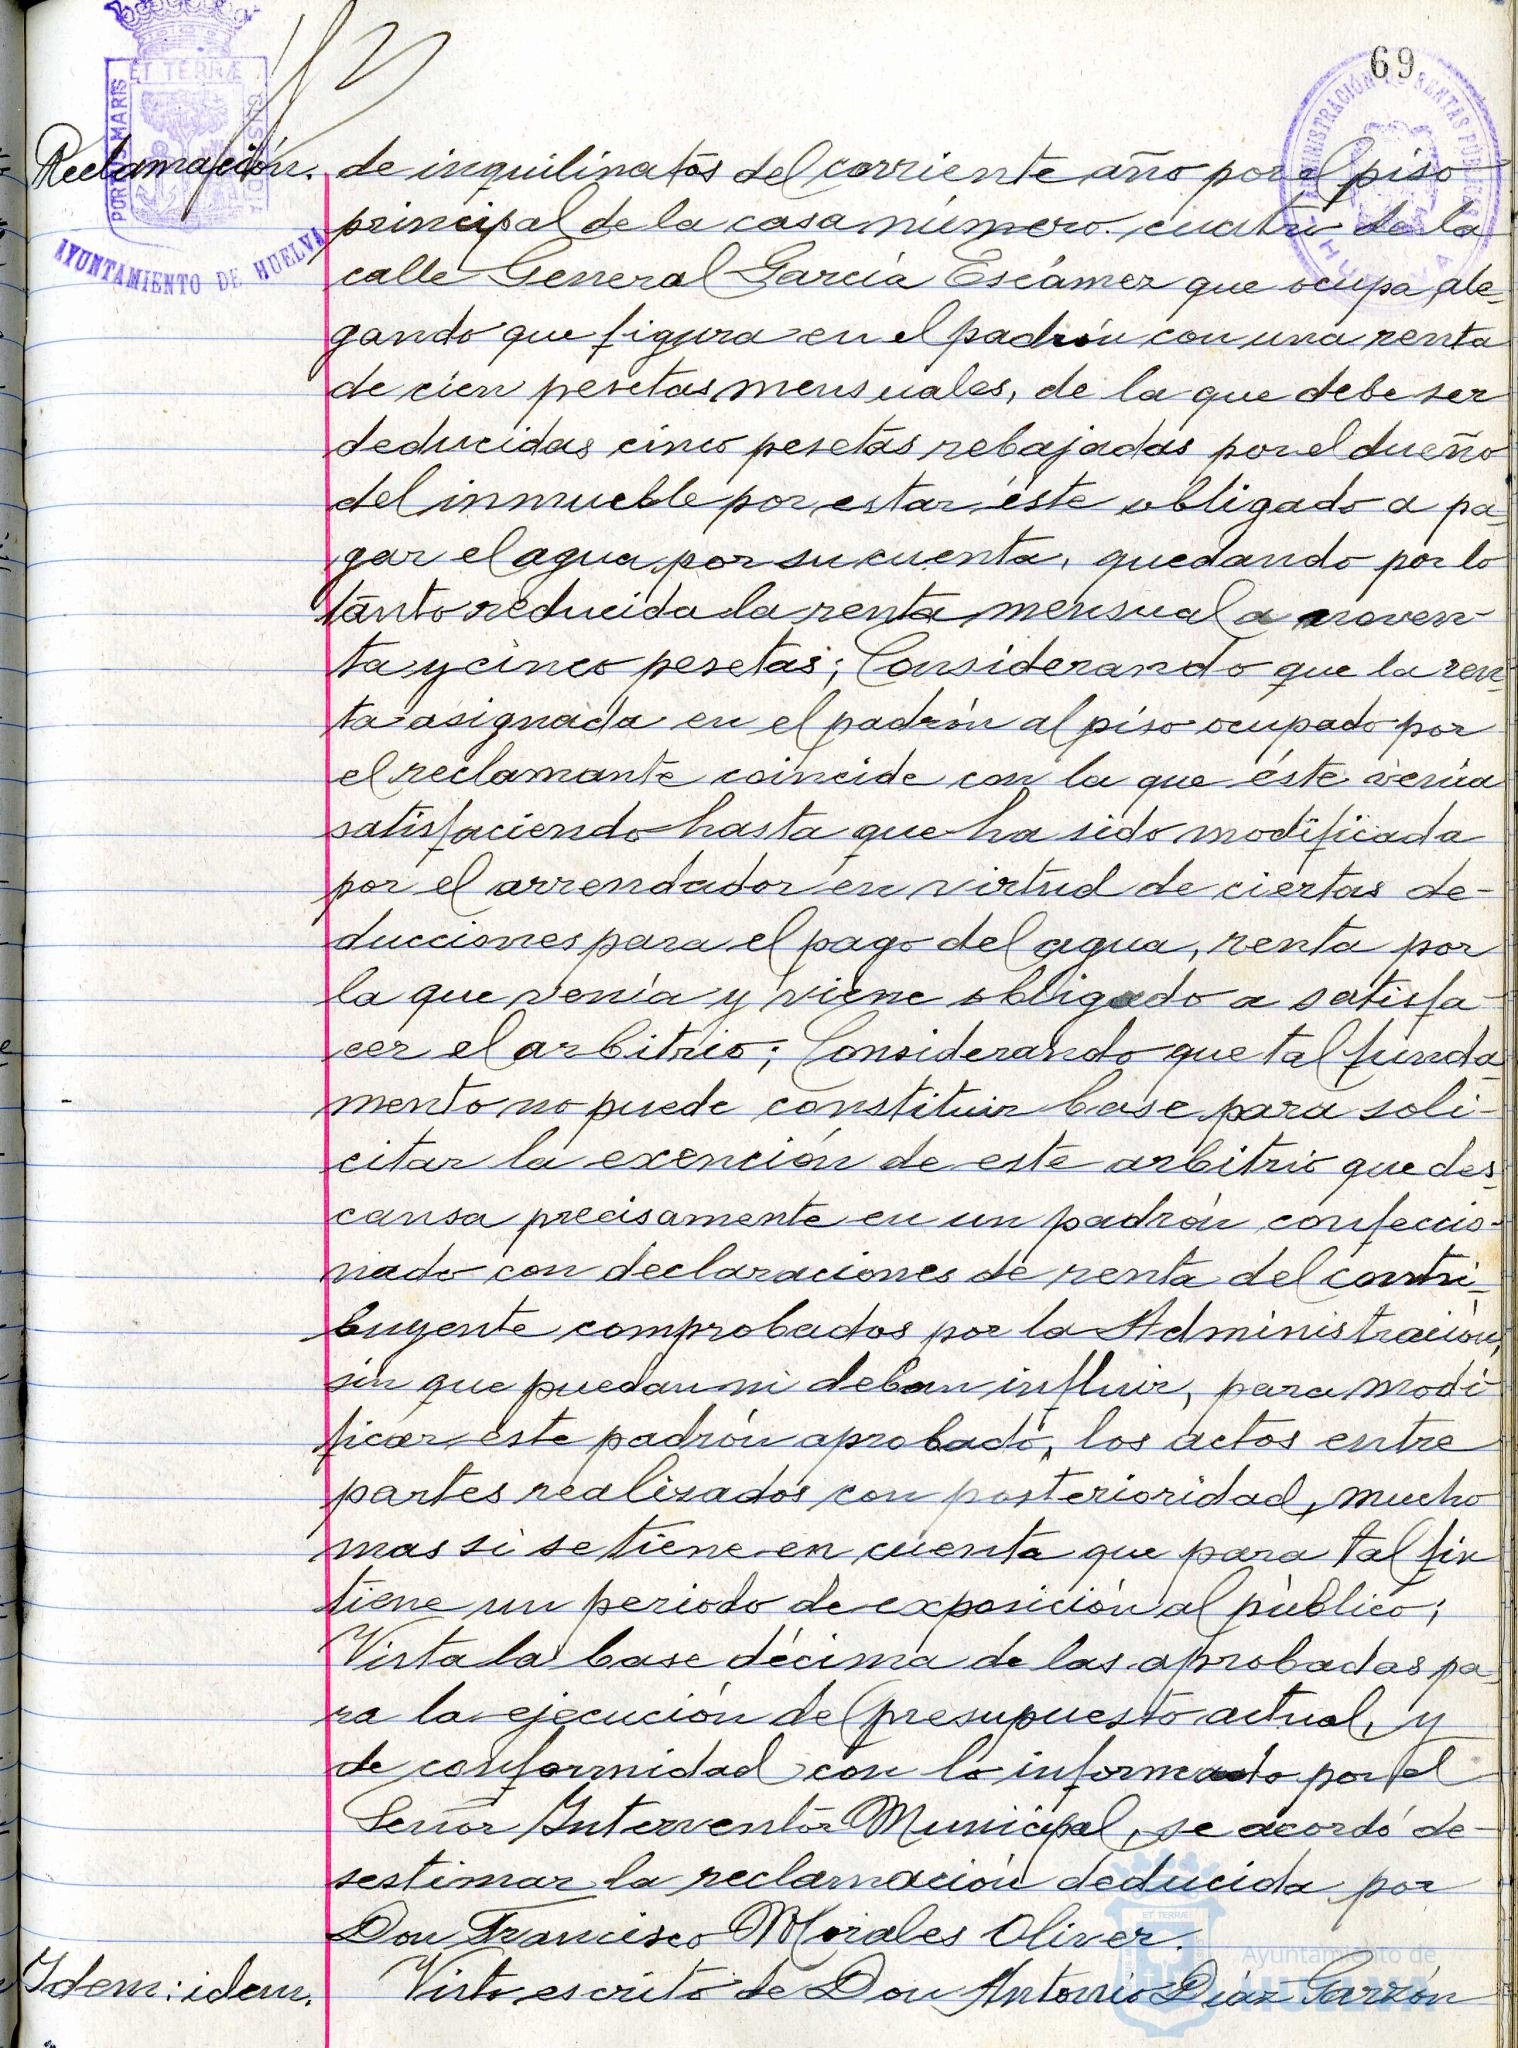 69
PORTUS MARIS
ET TERRÆ
CUSTODIA
AYUNTAMIENTO DE HUELVA
ADMINISTRACIÓN DE RENTAS PÚBLICAS
HUELVA
Reclamación. de inquilinatos del corriente año por el piso
principal de la casa número cuatro de la
calle General García Escámez que ocupa, ale-
gando que figura en el padrón con una renta
de cien pesetas mensuales, de la que debe ser
deducidas cinco pesetas rebajadas por el dueño
del inmueble por estar éste obligado a pa-
gar el agua por su cuenta, quedando por lo
tanto reducida la renta mensual a noven-
ta y cinco pesetas; Considerando que la ren-
ta asignada en el padrón al piso ocupado por
el reclamante coincide con la que éste venía
satisfaciendo hasta que ha sido modificada
por el arrendador en virtud de ciertas de-
ducciones para el pago del agua, renta por
la que venía y viene obligado a satisfa-
cer el arbitrio; Considerando que tal funda-
mento no puede constituir base para soli-
citar la exención de este arbitrio que des-
cansa precisamente en un padrón confeccio-
nado con declaraciones de renta del contri-
buyente comprobados por la Administración,
sin que puedan ni deban influir, para modi-
ficar este padrón aprobado, los actos entre
partes realizados con posterioridad, mucho
mas si se tiene en cuenta que para tal fin
tiene un periodo de exposición al público;
Vista la base décima de las aprobadas pa-
ra la ejecución del presupuesto actual, y
de conformidad con lo informado por el
Señor Interventor Municipal, se acordó de-
sestimar la reclamación deducida por
Don Francisco Morales Oliver.
Idem: idem. Visto escrito de Don Antonio Díaz Garzón
ET TERRÆ
Ayuntamiento de
HUELVA